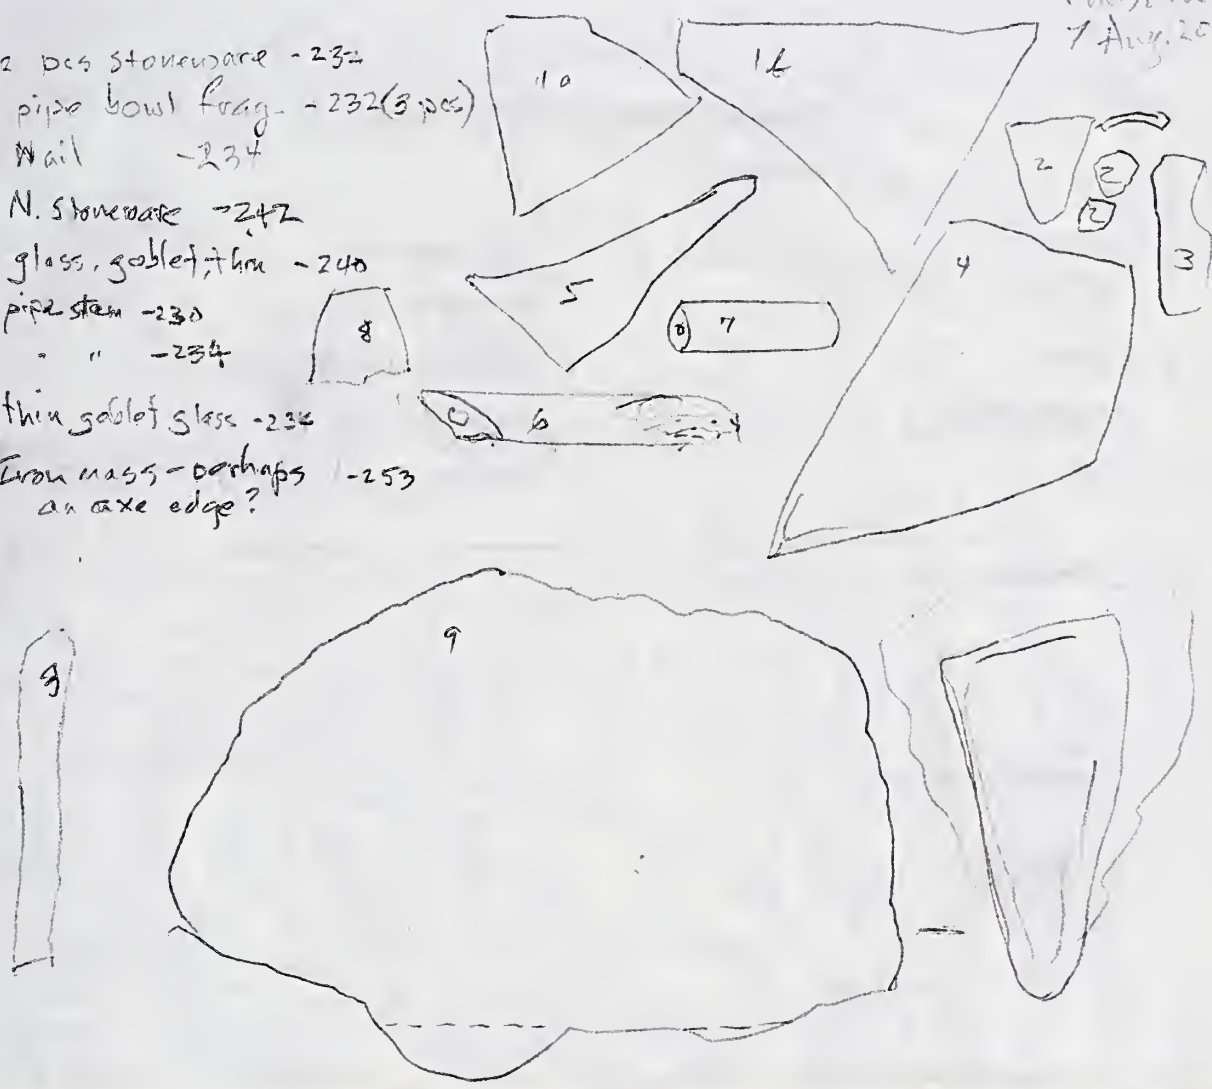 2 pcs stoneware -232
pipe bowl frag. -232 (3 pcs)
Nail -234
N. Stoneware -242
glass, goblet, thin -240
pipe stem -230
" " -234
thin goblet glass -234
Iron mass - perhaps -253
an axe edge?
7 Aug. 20
1a
1b
2
2
2
3
4
5
7
8
6
9
3